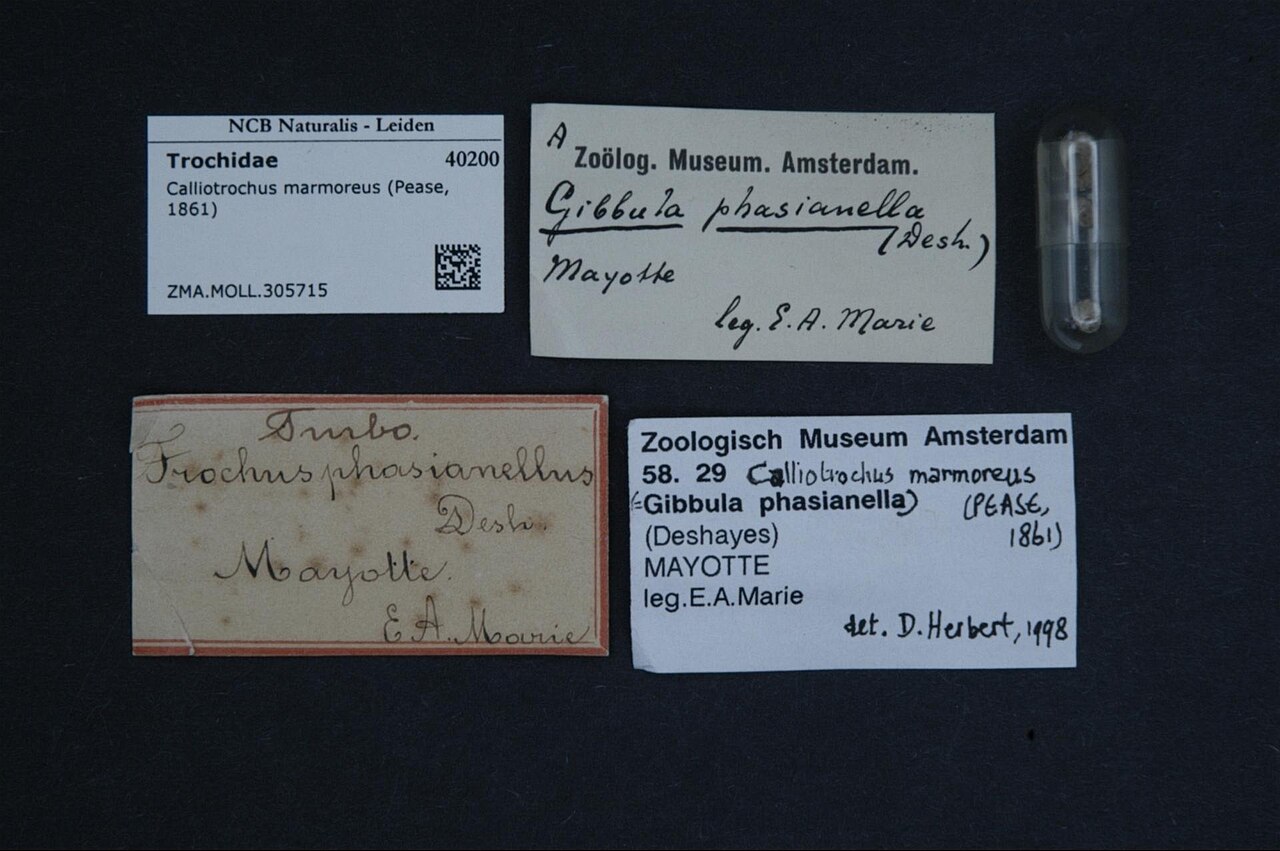 NCB Naturalis - Leiden
Trochidae 40200
Calliotrochus marmoreus (Pease,
1861)
ZMA.MOLL.305715
A
Zoölog. Museum. Amsterdam.
Gibbula phasianella
(Desh.)
Mayotte
leg. E. A. Marie
Turbo.
Trochus phasianellus
Desh.
Mayotte.
E A. Marie
Zoologisch Museum Amsterdam
58. 29 Calliotrochus marmoreus
(=Gibbula phasianella) (PEASE,
(Deshayes) 1861)
MAYOTTE
leg.E.A.Marie
det. D. Herbert, 1998